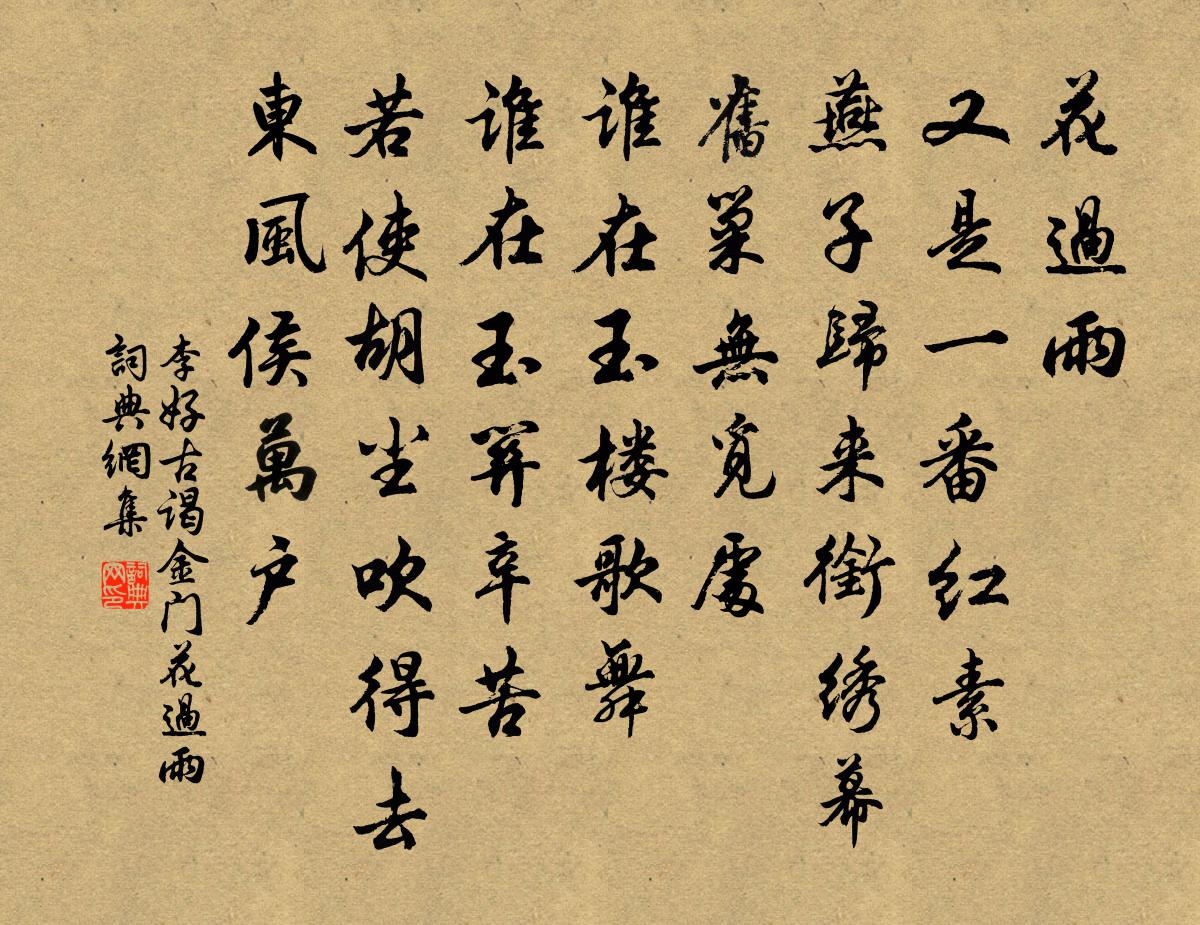 花過雨
又是一番红素
燕子歸来銜绣幕
舊巢無覓處
谁在玉楼歌舞
谁在玉關辛苦
若使胡尘吹得去
東風侯萬户
李好古谒金门花過雨
詞典網集
詞典网印